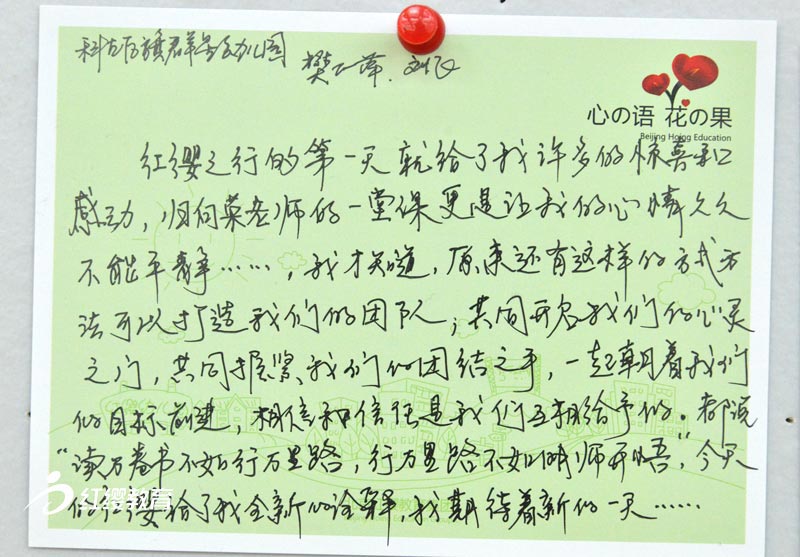 科左后旗群星幼儿园
樊工萍、刘飞
心の语 花の果
Beijing Hojog Education
红缨之行的第一天就给了我许多的惊喜和
感动，归何英老师的一堂课更是让我的心情久久
不能平静……，我才知道，原来还有这样的方式方
法可以打造我们的团队；共同开启我们的心灵
之门，共同握紧我们的团结之手，一起朝着我们
的目标前进，相信和信任是我们互相给予的。都说
“读万卷书不如行万里路，行万里路不如明师开悟”，今天
红缨给了我全新的诠释，我期待着新的一天……
红缨教育